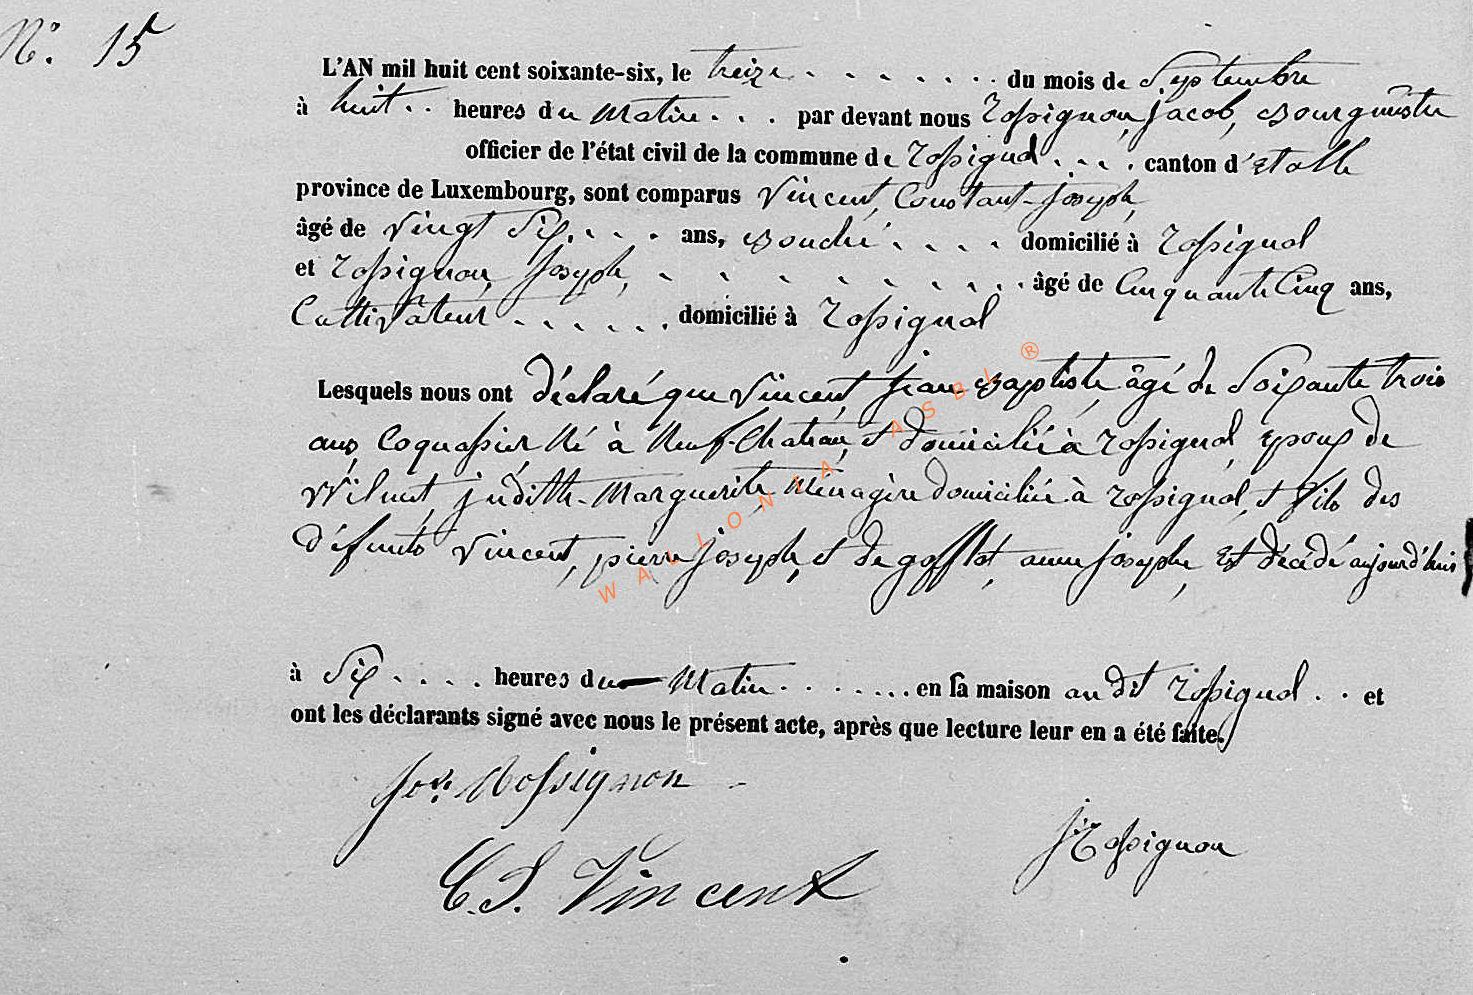 N.° 15
L'AN mil huit cent soixante-six, le treize . . . . . . . . du mois de Septembre
à huit . . heures du Matin . . . par devant nous Rossignon, Jacob, Bourgmestre
officier de l'état civil de la commune de Rossignol . . . . canton d'Etalle
province de Luxembourg, sont comparus Vincent, Constant-Joseph,
âgé de vingt Six . . . . ans, Bouché . . . . domicilié à Rossignol
et Rossignon, Joseph, . . . . . . . . . . âgé de Cinquante Cinq ans,
Cultivateur . . . . . . domicilié à Rossignol
Lesquels nous ont déclaré que Vincent, Jean Baptiste, âgé de Soixante trois
ans, Coquassier Né à Neuf-Chateau, et domicilié à Rossignol, époux de
Wilmet, judith-Marguerite, Ménagère domiciliée à Rossignol, et fils des
défunts Vincent, pierre joseph, et de gofflot, anne josephe, Est décédé aujourd'hui
à Six . . . . heures du Matin . . . . . . . en sa maison au dit Rossignol . . et
ont les déclarants signé avec nous le présent acte, après que lecture leur en a été faite.
Jos. Rossignon
J Rossignon
C. J. Vincent
WALLONIA ASBL ®